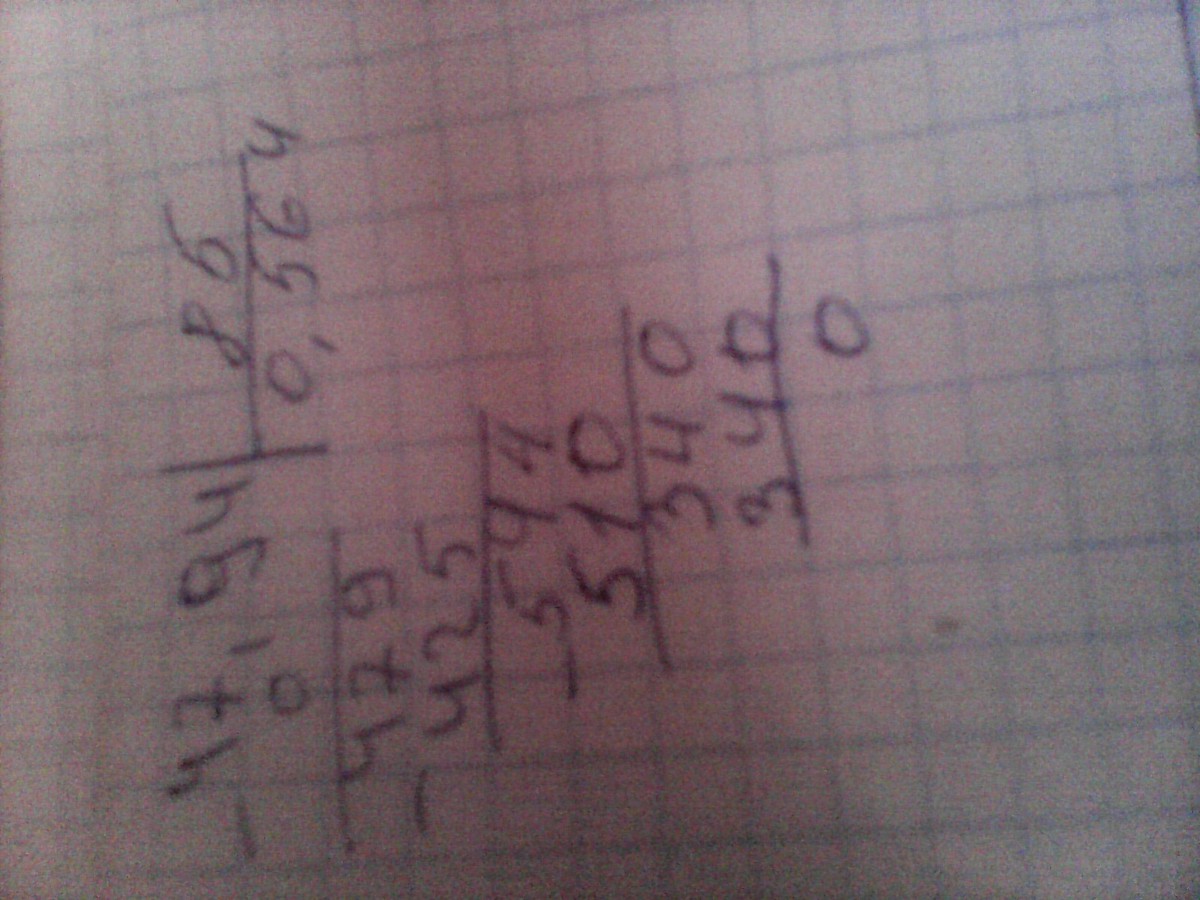 - 47,94 | 85
0 | 0,564
479
- 425
- 544
510
340
340
0